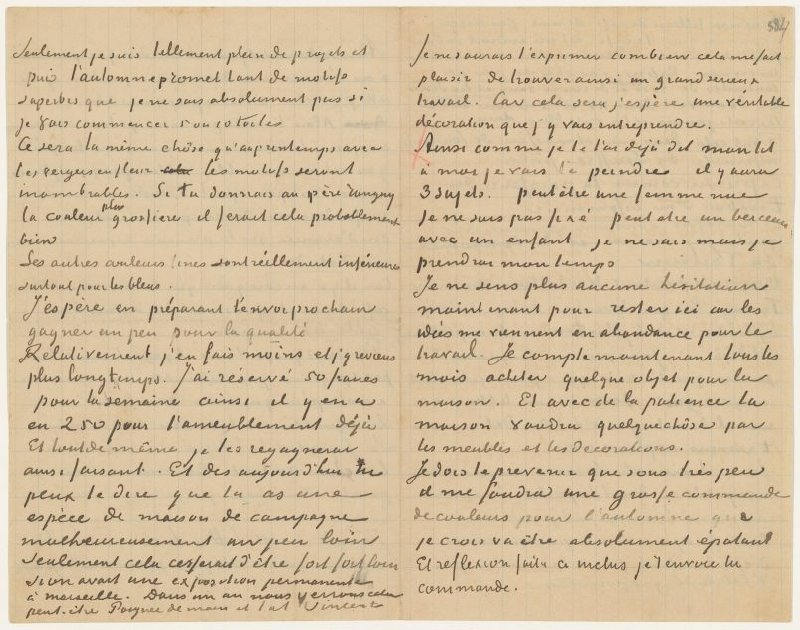 Seulement je suis tellement plein de projets et
puis l'automne promet tant de motifs
superbes que je ne sais absolument pas si
je vais commencer 5 ou 10 toiles.
Ce sera la même chôse qu'au printemps avec
les vergers en fleur les motifs seront
innombrables. Si tu donnais au père Tanguy
la couleur plus grossière il ferait cela probablement
bien
Ses autres couleurs fines sont réellement inférieures
surtout pour les bleus.
J'espère en préparant l'envoi prochain
gagner un peu pour la qualité
Relativement j'en fais moins et j'y reviens
plus longtemps. J'ai réservé 50 francs
pour la semaine ainsi il y en a
eu 250 pour l'ameublement déjà
Et tout de même je les regagnerai
ainsi faisant. Et dès aujourd'hui tu
peux te dire que tu as une
espèce de maison de campagne
malheureusement un peu loin
Seulement cela cesserait d'être fort fort loin
si on avait une exposition permanente
à Marseille. Dans un an nous verrons cela
peut-être Poignée de main et t. à t. Vincent
584
Je ne saurais t'exprimer combien cela me fait
plaisir de trouver ainsi un grand serieux
travail. Car cela sera j'espère une véritable
décoration que j'y vais entreprendre.
Ainsi comme je te l'ai déjà dit mon lit
à moi je vais le peindre il y aura
3 sujets. peut être une femme nue
je ne suis pas fixé peut etre un berceau
avec un enfant je ne sais mais je
prendrai mon temps
Je ne sens plus aucune hésitation
maintenant pour rester ici car les
idées me viennent en abondance pour le
travail. Je compte maintenant tous les
mois acheter quelque objet pour la
maison. Et avec de la patience la
maison vaudra quelque chôse par
les meubles et les decorations.
Je dois te prévenir que sous très peu
il me faudra une grosse commande
de couleurs pour l'automne que
je crois va être absolument épatant
Et reflexion faite ci inclus je t'envoie la
commande.